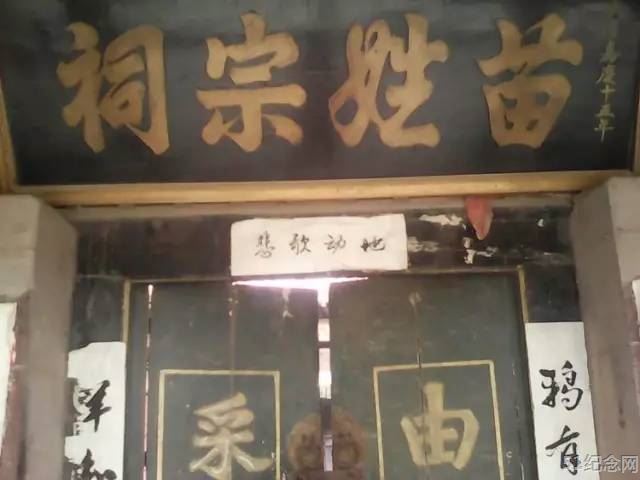 苗姓宗祠
嘉庆十五年
悲歌动地
鸦有
羊
由
采
纪念网